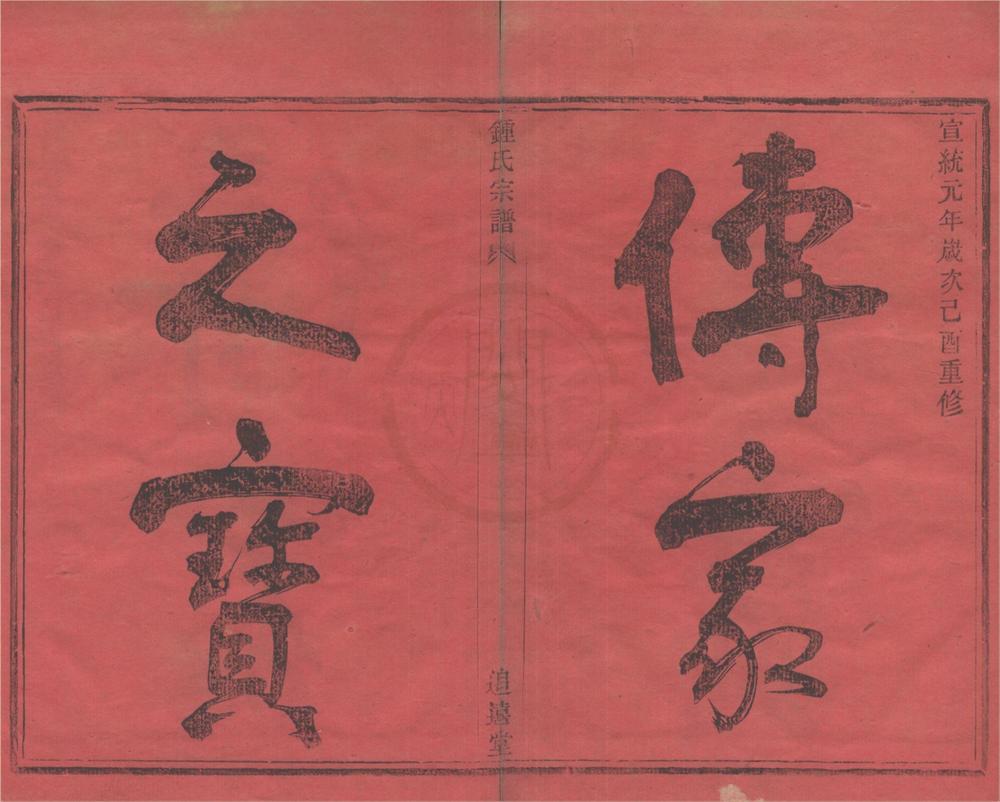 宣統元年歲次己酉重修
傳家
鍾氏宗譜
追遠堂
之寶